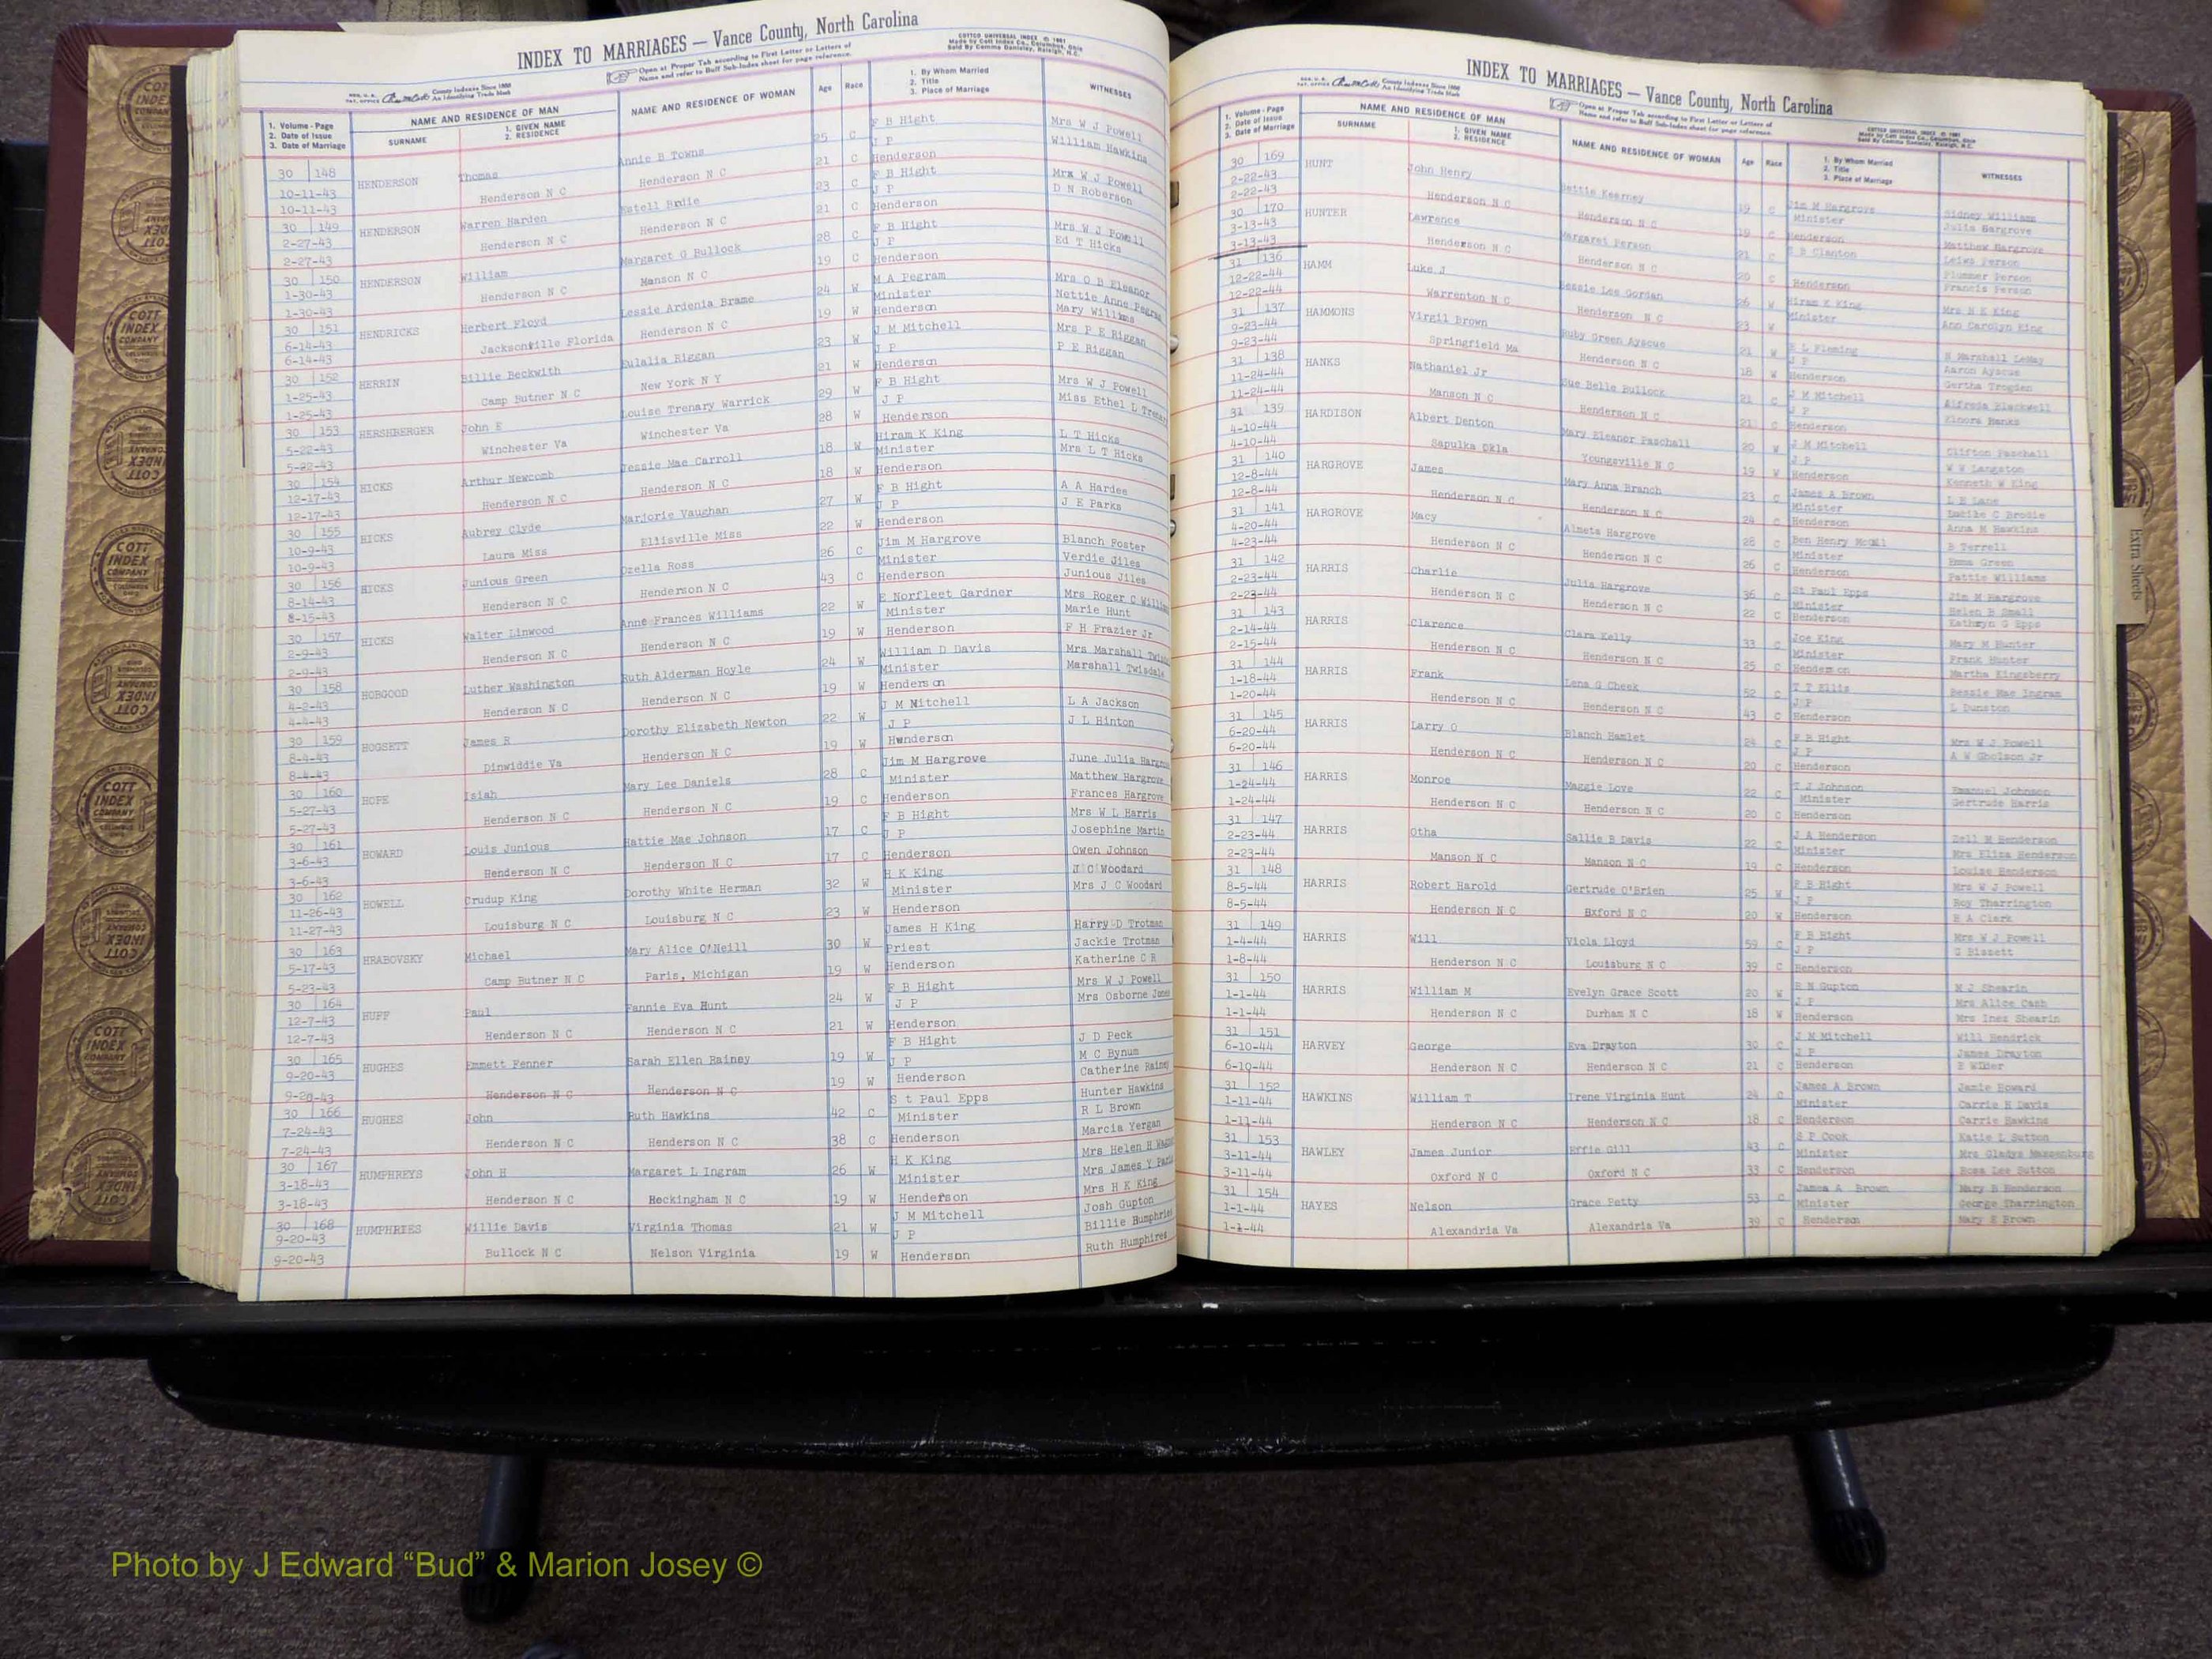 INDEX TO MARRIAGES — Vance County, North Carolina
Open at Proper Tab according to First Letter or Letters of
Name and refer to Buff Sub-Index sheet for page reference.
COTTCO UNIVERSAL INDEX © 1961
Made by Cott Index Co., Columbus, Ohio
County Indexes Since 1888
An Identifying Trade Mark
1. Volume - Page
2. Date of Issue
3. Date of Marriage
NAME AND RESIDENCE OF MAN
SURNAME
1. GIVEN NAME
2. RESIDENCE
NAME AND RESIDENCE OF WOMAN
Age
Race
1. By Whom Married
2. Title
3. Place of Marriage
WITNESSES
30 148 HENDERSON Thomas Annie B Towns 25 C F B Hight Mrs W J Powell
10-11-43 Henderson N C Henderson N C 21 C J P William Hawkins
10-11-43 Henderson
30 149 HENDERSON Warren Harden Estell Brdie 23 C F B Hight Mrs W J Powell
2-27-43 Henderson N C Henderson N C 21 C J P D N Roberson
2-27-43 Henderson
30 150 HENDERSON William Margaret G Bullock 28 C F B Hight Mrs W J Powell
1-30-43 Henderson N C Manson N C 19 C J P Ed T Hicks
1-30-43 Henderson
30 151 HENDRICKS Herbert Floyd Lessie Ardenia Brame 24 W M A Pegram Mrs O B Eleanor
6-14-43 Jacksonville Florida Henderson N C 19 W Minister Nettie Anne
6-14-43 Henderson Mary Williams
30 152 HERRIN Billie Beckwith Eulalia Riggan 23 W J M Mitchell Mrs P E Riggan
1-25-43 Camp Butner N C New York N Y 21 W J P P E Riggan
1-25-43 Henderson
30 153 HERSHBERGER John E Louise Trenary Warrick 29 W F B Hight Mrs W J Powell
5-22-43 Winchester Va Winchester Va 28 W J P Miss Ethel L
5-22-43 Henderson
30 154 HICKS Arthur Newcomb Jessie Mae Carroll 18 W Hiram K King L T Hicks
12-17-43 Henderson N C Henderson N C 18 W Minister Mrs L T Hicks
12-17-43 Henderson
30 155 HICKS Aubrey Clyde Marjorie Vaughan 27 W F B Hight A A Hardee
10-9-43 Laura Miss Ellisville Miss 22 W J P J E Parks
10-9-43 Henderson
30 156 HICKS Junious Green Ozella Ross 26 C Jim M Hargrove Blanch Foster
8-14-43 Henderson N C Henderson N C 43 C Minister Verdie Jiles
8-15-43 Henderson Junious Jiles
30 157 HICKS Walter Linwood Anne Frances Williams 22 W E Norfleet Gardner Mrs Roger C
2-9-43 Henderson N C Henderson N C 19 W Minister Marie Hunt
2-9-43 Henderson F H Frazier Jr
30 158 HOBGOOD Luther Washington Ruth Alderman Hoyle 24 W William D Davis Mrs Marshall
4-2-43 Henderson N C Henderson N C 19 W Minister Marshall Twisdale
4-4-43 Henderson
30 159 HOGSETT James R Dorothy Elizabeth Newton 22 W J M Mitchell L A Jackson
8-4-43 Dinwiddie Va Henderson N C 19 W J P J L Hinton
8-4-43 Henderson
30 160 HOPE Isiah Mary Lee Daniels 28 C Jim M Hargrove June Julia
5-27-43 Henderson N C Henderson N C 19 C Minister Matthew Hargrove
5-27-43 Henderson Frances Hargrove
30 161 HOWARD Louis Junious Hattie Mae Johnson 17 C F B Hight Mrs W L Harris
3-6-43 Henderson N C Henderson N C 17 C J P Josephine Martin
3-6-43 Henderson Owen Johnson
30 162 HOWELL Crudup King Dorothy White Herman 32 W H K King J C Woodard
11-26-43 Louisburg N C Louisburg N C 23 W Minister Mrs J C Woodard
11-27-43 Henderson
30 163 HRABOVSKY Michael Mary Alice O'Neill 30 W James H King Harry D Trotman
5-17-43 Camp Butner N C Paris, Michigan 19 W Priest Jackie Trotman
5-23-43 Henderson Katherine C R
30 164 HUFF Paul Fannie Eva Hunt 24 W F B Hight Mrs W J Powell
12-7-43 Henderson N C Henderson N C 21 W J P Mrs Osborne
12-7-43 Henderson
30 165 HUGHES Emmett Fenner Sarah Ellen Rainey 19 W F B Hight J D Peck
9-20-43 Henderson N C Henderson N C 19 W J P M C Bynum
9-20-43 Henderson Catherine Rainey
30 166 HUGHES John Ruth Hawkins 42 C S t Paul Epps Hunter Hawkins
7-24-43 Henderson N C Henderson N C 38 C Minister R L Brown
7-24-43 Henderson Marcia Yergan
30 167 HUMPHREYS John H Margaret L Ingram 26 W H K King Mrs Helen H
3-18-43 Henderson N C Rockingham N C 19 W Minister Mrs James Y
3-18-43 Henderson Mrs H K King
30 168 HUMPHRIES Willie Davis Virginia Thomas 21 W J M Mitchell Josh Gupton
9-20-43 Bullock N C Nelson Virginia 19 W J P Billie Humphries
9-20-43 Henderson Ruth Humphires
INDEX TO MARRIAGES — Vance County, North Carolina
Open at Proper Tab according to First Letter or Letters of
Name and refer to Buff Sub-Index sheet for page reference.
1. Volume - Page
2. Date of Issue
3. Date of Marriage
NAME AND RESIDENCE OF MAN
SURNAME
1. GIVEN NAME
2. RESIDENCE
NAME AND RESIDENCE OF WOMAN
Age
Race
1. By Whom Married
2. Title
3. Place of Marriage
WITNESSES
30 169 HUNT John Henry Bettie Kearney 19 C Jim M Hargrove Sidney William
2-22-43 Henderson N C Henderson N C 19 C Minister Julia Hargrove
2-22-43 Henderson Matthew Hargrove
30 170 HUNTER Lawrence Margaret Person 21 C Clanton Person
3-13-43 Henderson N C Henderson N C 20 C Plummer Person
3-13-43 Henderson Francis Person
31 136 HAMM Luke J Bessie Lee Gordan 26 W Hiram K King Mrs H K King
12-22-44 Warrenton N C Henderson N C 23 W Minister Ann Carolyn King
12-22-44
31 137 HAMMONS Virgil Brown Ruby Green Ayscue 21 W R L Fleming S Marshall
9-23-44 Springfield Ma Henderson N C 18 W J P Aaron Ayscue
9-23-44 Henderson Gertha Trogden
31 138 HANKS Nathaniel Jr Sue Belle Bullock 21 C J M Mitchell Alfreda Blackwell
11-24-44 Manson N C Henderson N C 21 C J P Elnora Hanks
11-24-44 Henderson
31 139 HARDISON Albert Denton Mary Eleanor Paschall 20 W J M Mitchell Clifton Paschall
4-10-44 Sapulka Okla Youngsville N C 19 W J P W W Langston
4-10-44 Henderson Kenneth W King
31 140 HARGROVE James Mary Anna Branch 23 C James A Brown L E Lane
12-8-44 Henderson N C Henderson N C 24 C Minister Lucile C Brodie
12-8-44 Henderson Anna M Hawkins
31 141 HARGROVE Macy Almeta Hargrove 28 C Ben Henry B Terrell
4-20-44 Henderson N C Henderson N C 26 C Minister Emma Green
4-23-44 Henderson Pattie Williams
31 142 HARRIS Charlie Julia Hargrove 36 C St Paul Epps Jim M Hargrove
2-23-44 Henderson N C Henderson N C 22 C Minister Helen B Small
2-23-44 Henderson Kathryn G Epps
31 143 HARRIS Clarence Clara Kelly 33 C Joe King Mary M Hunter
2-14-44 Henderson N C Henderson N C 25 C Minister Frank Hunter
2-15-44 Henderson Martha Kingsberry
31 144 HARRIS Frank Lena G Cheek 52 C T T Ellis Bessie Mae Ingram
1-18-44 Henderson N C Henderson N C 43 C J P L Dunston
1-20-44 Henderson
31 145 HARRIS Larry O Blanch Hamlet 24 C F B Hight Mrs W J Powell
6-20-44 Henderson N C Henderson N C 20 C J P A W Gholson Jr
6-20-44 Henderson
31 146 HARRIS Monroe Maggie Love 22 C T J Johnson Emanuel Johnson
1-24-44 Henderson N C Henderson N C 20 C Minister Gertrude Harris
1-24-44 Henderson
31 147 HARRIS Otha Sallie B Davis 22 C J A Henderson Zell M Henderson
2-23-44 Manson N C Manson N C 19 C Minister Mrs Eliza Henderson
2-23-44 Henderson Louise Henderson
31 148 HARRIS Robert Harold Gertrude O'Brien 25 W F B Hight Mrs W J Powell
8-5-44 Henderson N C Oxford N C 20 W J P Roy Tharrington
8-5-44 Henderson E A Clark
31 149 HARRIS Will Viola Lloyd 59 C F B Hight Mrs W J Powell
1-4-44 Henderson N C Louisburg N C 39 C J P G Bissett
1-8-44 Henderson
31 150 HARRIS William M Evelyn Grace Scott 20 W E N Gupton M J Shearin
1-1-44 Henderson N C Durham N C 18 W J P Mrs Alice Cash
1-1-44 Henderson Mrs Inez Shearin
31 151 HARVEY George Eva Drayton 30 C J M Mitchell Will Hendrick
6-10-44 Henderson N C Henderson N C 21 C J P James Drayton
6-10-44 Henderson E Wilder
31 152 HAWKINS William T Irene Virginia Hunt 24 C James A Brown Jamie Howard
1-11-44 Henderson N C Henderson N C 18 C Minister Carrie H Davis
1-11-44 Henderson Carrie Hawkins
31 153 HAWLEY James Junior Effie Gill 43 C S P Cook Katie L Sutton
3-11-44 Oxford N C Oxford N C 33 C Minister Mrs Gladys
3-11-44 Henderson Rosa Lee Sutton
31 154 HAYES Nelson Grace Petty 53 C James A Brown Mary B Henderson
1-1-44 Alexandria Va Alexandria Va 39 C Minister George Tharrington
1-1-44 Henderson Mary E Brown
Extra Sheets
COTT
INDEX
COMPANY
COLUMBUS
Photo by J Edward “Bud” & Marion Josey ©